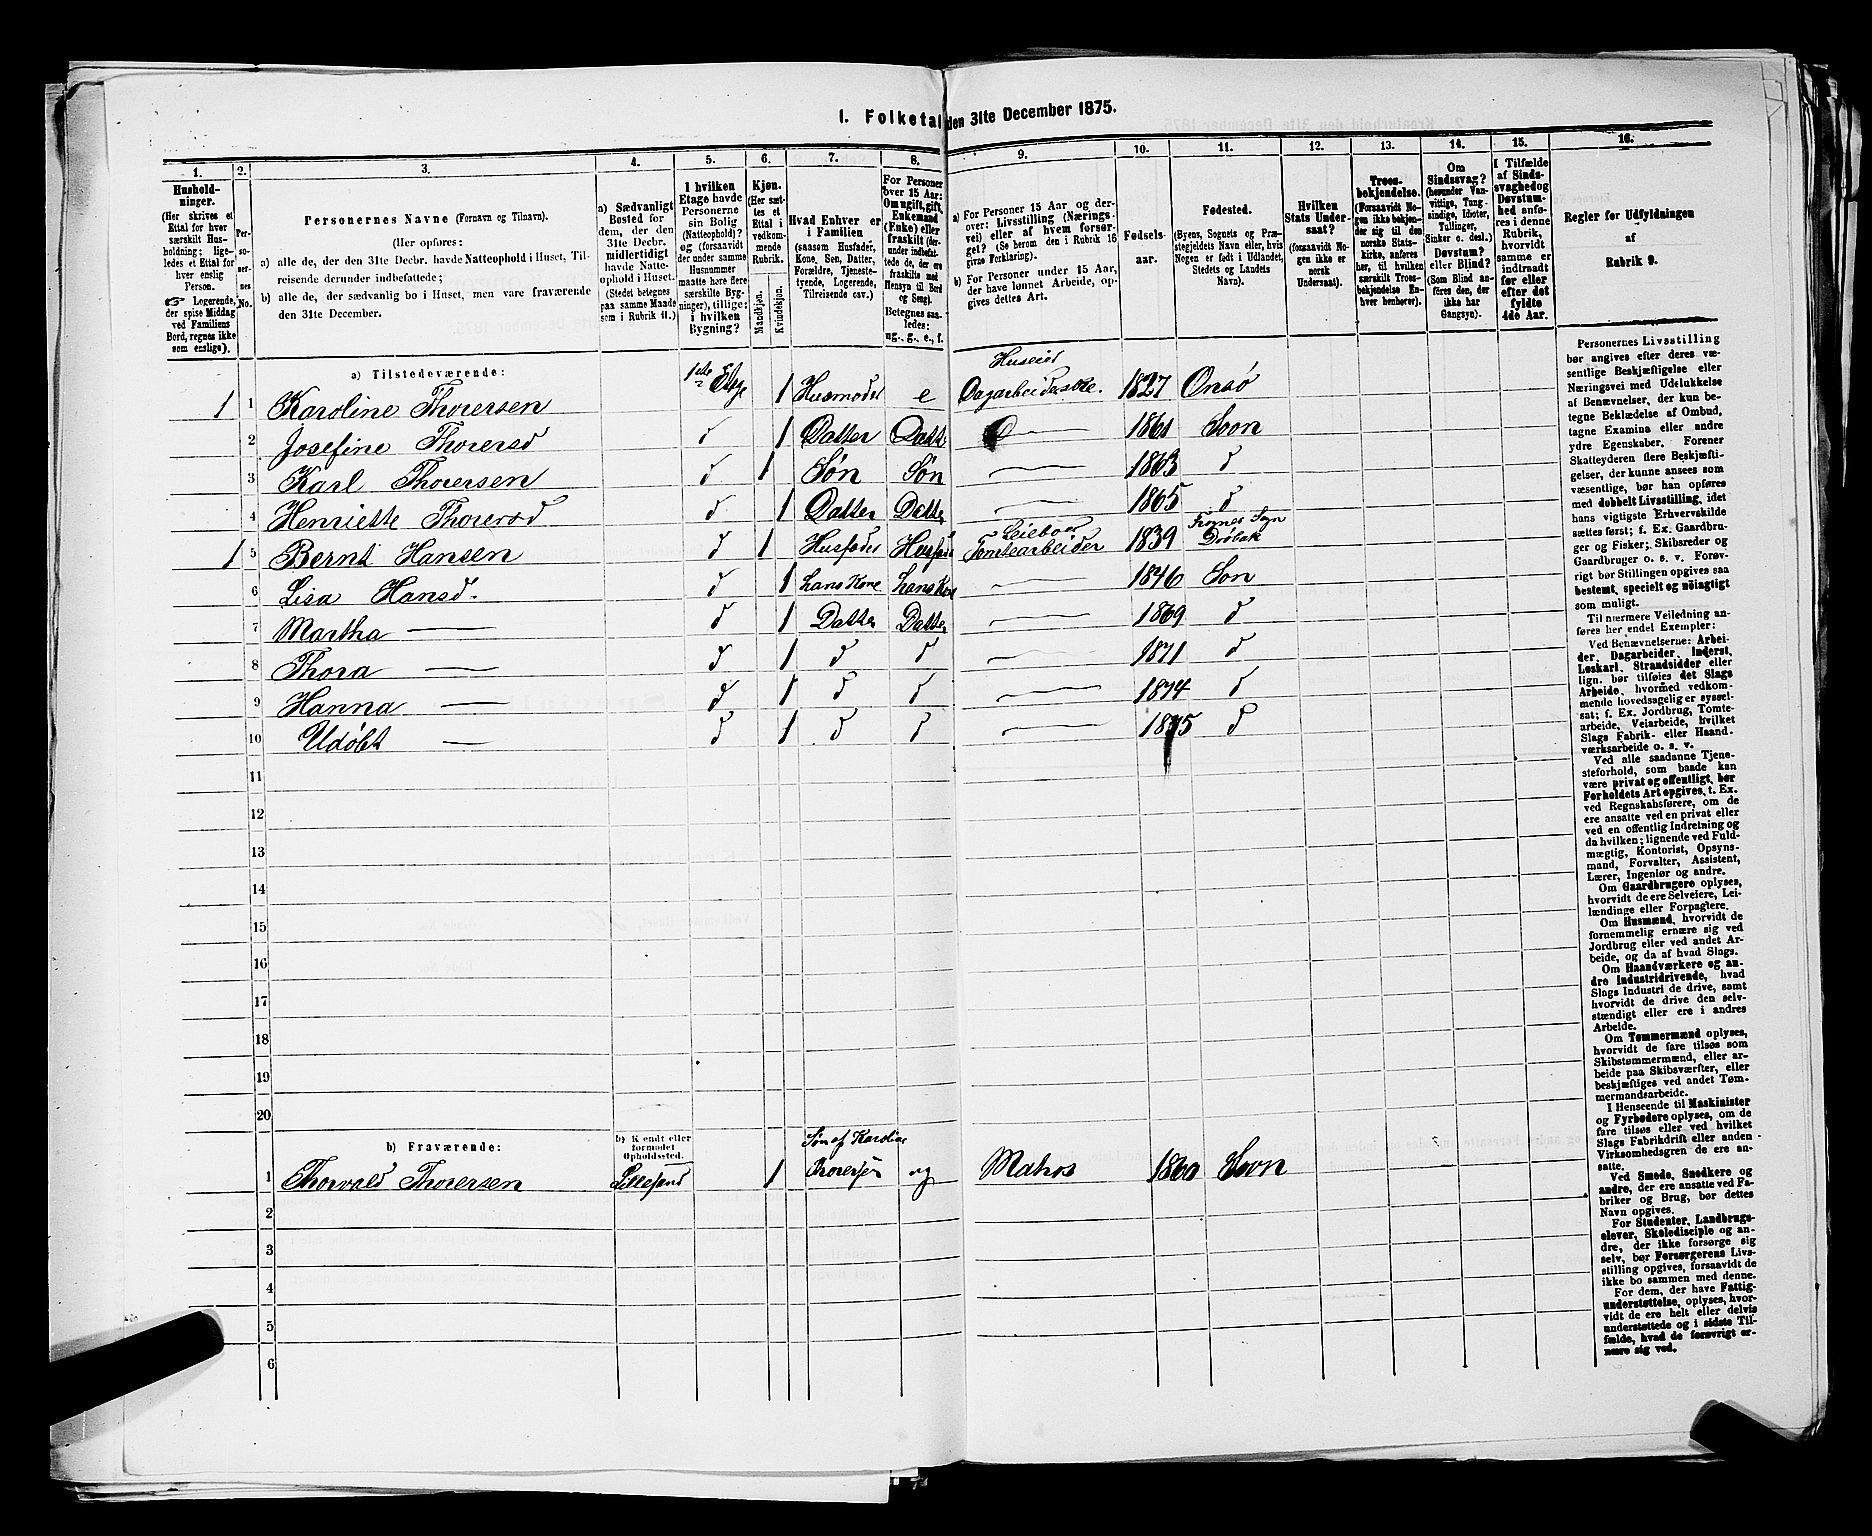 1. Folketal den 31te December 1875.
1.
2.
3.
4.
5.
6.
7.
8.
9.
10.
11.
12.
13.
14.
15.
16.
Husholdninger.
(Her skrives et
Ettal for hver
særskilt Husholdning;
ligeledes et Ettal for
hver enslig
Person.
☞ Logerende,
der spise Middag
ved Familiens
Bord, regnes ikke
som enslige).
Personernes No.
Personernes Navne (Fornavn og Tilnavn).
(Her opføres:
a) alle de, der den 31te Decbr. havde Natteophold i Huset, Tilreisende derunder indbefattede;
b) alle de, der sædvanlig bo i Huset, men vare fraværende
den 31te December.
a) Sædvanligt
Bosted for
dem, der den
31te Decbr.
midlertidigt
havde Natteophold i Huset.
(Stedet betegnes
paa samme Maade
som i Rubrik 11.)
I hvilken
Etage havde
Personerne
sin Bolig
(Natteophold)?
og (forsaavidt
der under samme
Husnummer
maatte høre flere
særskilte Bygninger), tillige:
i hvilken
Bygning?
Kjøn.
(Her sættes et
Ettal i
vedkommende
Rubrik.
Mandkjøn.
Kvindekjøn.
Hvad Enhver er
i Familien
(saasom Husfader,
Kone, Søn, Datter,
Forældre, Tjenestetyende, Logerende,
Tilreisende osv.)
For Personer
over 15 Aar:
Om ugift, gift,
Enkemand
(Enke) eller
fraskilt
Betegnes saaledes:
ug., g., e., f.
a) For Personer 15 Aar og derover: Livsstilling (Næringsvei) eller af hvem forsørget? (Se herom den i Rubrik 16
givne Forklaring).
b) For Personer under 15 Aar,
der have lønnet Arbeide, opgives dettes Art.
Fødselsaar.
Fødested.
(Byens, Sognets og Præstegjeldets Navn eller, hvis
Nogen er født i Udlandet,
Stedets og Landets
Navn).
Hvilken
Stats Undersaat?
(forsaavidt Nogen ikke er
norsk
Undersaat).
Troesbekjendelse.
(Forsaavidt Nogen ikke bekjender sig til den
norske Statskirke, anføres
her, til hvilken
særskilt Troesbekjendelse Enhver henhører).
Om
Sindssvag?
(herunder Vanvittige, Tungsindige, Idioter,
Tullinger,
Sinker o. desl.)
Døvstum?
eller Blind?
(Som Blind anføres den, der
ikke har
Gangsyn).
I Tilfælde
af Sindssvaghed og
Døvstumhed anføres i denne
Rubrik,
hvorvidt
samme er
indtraadt
før eller
efter det
fyldte
4de Aar.
Regler for Udfyldningen
af
Rubrik 9.
a) Tilstedeværende:
1 1 Karoline Thorersen 1ste Etage 1 Husmoder e Huseier Dagarbeiderske. 1827 Onsø
2 Josefine Thorersd d 1 Datter Datt 1861 Soon
3 Karl Thorersen d 1 Søn Søn 1863 d
4 Henriette Thorersd d 1 Datter Datter 1865 d
1 5 Bernt Hansen d 1 Husfader Husfader Leieboer Tomtearbeider 1839 Drøbak
6 Lisa Hansd. d 1 hans Kone hans Kone 1846 Son
7 Martha — d 1 Datter Datter 1869 d
8 Thora — d 1 d d 1871 d
9 Hanna — d 1 d d 1874 d
10 Udøbt — d 1 d d 1875 d
11
12
13
14
15
16
17
18
19
20
b) Fraværende:
b) Kjendt eller
formodet
Opholdssted.
1 Thorvald Thorersen Lillesand 1 Søn af Karoline Thorersen ug Matros 1860 Soon
2
3
4
5
6
Personernes Livsstilling
bør angives efter deres væsentlige Beskjæftigelse eller
Næringsvei med Udelukkelse
af Benævnelser, der kun betegne Beklædelse af Ombud,
tagne Examina eller andre
ydre Egenskaber. Forener
Skatteyderen flere Beskjæftigelser, der kunne ansees som
væsentlige, bør han opføres
med dobbelt Livsstilling, idet
hans vigtigste Erhvervskilde
sættes først; f. Ex. Gaardbruger og Fisker; Skibsreder og
Gaardbruger o. s. v. Forøvrigt bør Stillingen opgives saa
bestemt, specielt og nøiagtigt
som muligt.
Til nærmere Veiledning anføres her endel Exempler:
Ved Benævnelserne: Arbeider, Dagarbeider, Inderst,
Løskarl, Strandsidder eller
lign. bør tilføies det Slags
Arbeide, hvormed vedkommende hovedsagelig er sysselsat; f. Ex. Jordbrug, Tomtearbeide, Veiarbeide, hvilket
Slags Fabrik- eller Haandværksarbeide o. s. v.
Ved alle saadanne Tjenesteforhold, som baade kan
være privat og offentligt, bør
Forholdets Art opgives, t. Ex.
ved Regnskabsførere, om de
ere ansatte ved en privat eller
ved en offentlig Indretning og
da hvilken; lignende ved Fuldmægtig, Kontorist, Opsynsmand, Forvalter, Assistent,
Lærer, Ingeniør og andre.
Om Gaardbrugere oplyses,
hvorvidt de ere Selveiere, Leilændinge eller Forpagtere.
Om Husmænd, hvorvidt de
fornemmelig ernære sig ved
Jordbrug eller ved andet Arbeide, og da af hvad Slags.
Om Haandværkere og andre Industridrivende, hvad
Slags Industri de drive, samt
hvorvidt de drive den selvstændigt eller ere i andres
Arbeide.
Om Tømmermænd oplyses,
hvorvidt de fare tilsøs som
Skibstømmermænd, eller arbeide paa Skibsværfter, eller
beskjæftiges ved andet Tømmermandsarbeide.
I Henseende til Maskinister
og Fyrbødere oplyses, om de
fare tilsøs eller ved hvilket
Slags Fabrikdrift eller anden
Virksomhedsgren de ere ansatte.
Ved Smede, Snedkere og
andre, der ere ansatte ved Fabriker og Brug, bør dettes
Navn opgives.
For Studenter, Landbrugselever, Skoledisciple og andre, der ikke forsørge sig
selv, bør Forsørgerens Livsstilling opgives, forsaavidt de
ikke bo sammen med denne.
For dem, der have Fattigunderstøttelse, oplyses, hvorvidt de ere helt eller delvis
understøttede og i sidste Tilfælde, hvad de forøvrigt ernære sig ved.